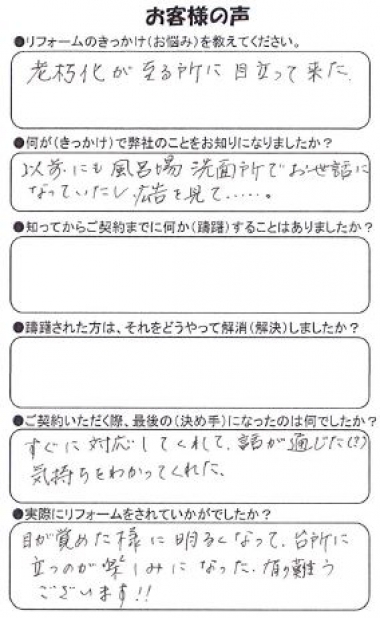 お客様の声
●リフォームのきっかけ(お悩み)を教えてください。
老朽化が至る所に目立って来た.
●何が(きっかけ)で弊社のことをお知りになりましたか？
以前にも風呂場洗面所でお世話に
なっていたし広告を見て……。
●知ってからご契約までに何か(躊躇)することはありましたか？
●躊躇された方は、それをどうやって解消(解決)しましたか？
●ご契約いただく際、最後の(決め手)になったのは何でしたか？
すぐに対応してくれて、話が通じた(?)
気持ちをわかってくれた、
●実際にリフォームをされていかがでしたか？
目が覚めた様に明るくなって、台所に
立つのが楽しみになった.有り難う
ございます!!